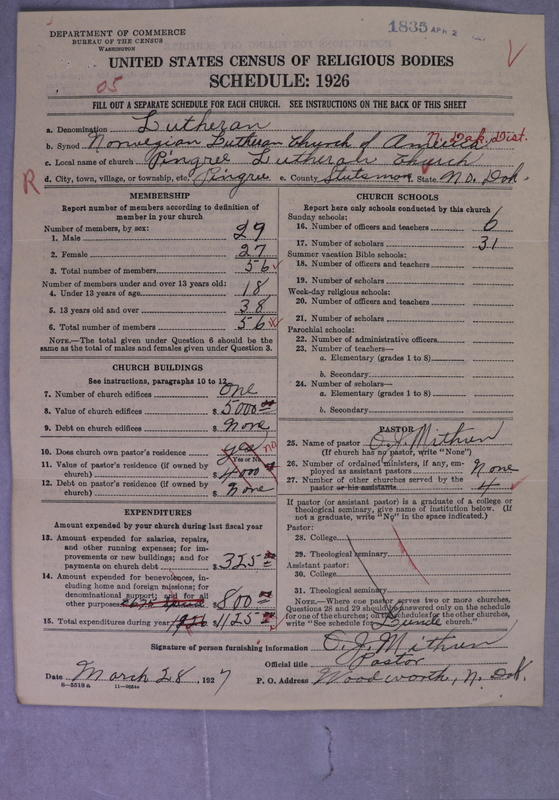 DEPARTMENT OF COMMERCE
BUREAU OF THE CENSUS
WASHINGTON
1835 APR 2
UNITED STATES CENSUS OF RELIGIOUS BODIES
SCHEDULE: 1926
05
FILL OUT A SEPARATE SCHEDULE FOR EACH CHURCH. SEE INSTRUCTIONS ON THE BACK OF THIS SHEET
a. Denomination Lutheran
b. Synod Norwegian Lutheran Church of America N. Dak. Dist.
c. Local name of church Pingree Lutheran Church
R
d. City, town, village, or township, etc. Pingree e. County Stutsman f. State No. Dak.
MEMBERSHIP
Report number of members according to definition of
member in your church
Number of members, by sex:
1. Male 29
2. Female 27
3. Total number of members 56
Number of members under and over 13 years old:
4. Under 13 years of age 18
5. 13 years old and over 38
6. Total number of members 56
NOTE.—The total given under Question 6 should be the
same as the total of males and females given under Question 3.
CHURCH BUILDINGS
See instructions, paragraphs 10 to 12
7. Number of church edifices One
8. Value of church edifices $ 5000.00
9. Debt on church edifices $ None
10. Does church own pastor's residence yes no
Yes or No
11. Value of pastor's residence (if owned by
church) $ 4000.00
12. Debt on pastor's residence (if owned by
church) $ None
EXPENDITURES
Amount expended by your church during last fiscal year
13. Amount expended for salaries, repairs,
and other running expenses; for im-
provements or new buildings; and for
payments on church debt $ 325.00
14. Amount expended for benevolences, in-
cluding home and foreign missions; for
denominational support; and for all
other purposes $ 800.00
15. Total expenditures during year 1926 $ 1125.00
CHURCH SCHOOLS
Report here only schools conducted by this church
Sunday schools:
16. Number of officers and teachers 6
17. Number of scholars 31
Summer vacation Bible schools:
18. Number of officers and teachers
19. Number of scholars
Week-day religious schools:
20. Number of officers and teachers
21. Number of scholars
Parochial schools:
22. Number of administrative officers
23. Number of teachers—
a. Elementary (grades 1 to 8)
b. Secondary
24. Number of scholars—
a. Elementary (grades 1 to 8)
b. Secondary
PASTOR
25. Name of pastor O. J. Mithun
(If church has no pastor, write "None")
26. Number of ordained ministers, if any, em-
ployed as assistant pastors None
27. Number of other churches served by the
pastor or his assistants 4
If pastor (or assistant pastor) is a graduate of a college or
theological seminary, give name of institution below. (If
not a graduate, write "No" in the space indicated.)
Pastor:
28. College
29. Theological seminary
Assistant pastor:
30. College
31. Theological seminary
NOTE.—Where one pastor serves two or more churches,
Questions 28 and 29 should be answered only on the schedule
for one of the churches; on the schedules for the other churches,
write "See schedule for Lunde church."
Signature of person furnishing information O. J. Mithun
Official title Pastor
Date March 28, 1927 P. O. Address Woodworth, N. Dak.
8-5518a 11-9854